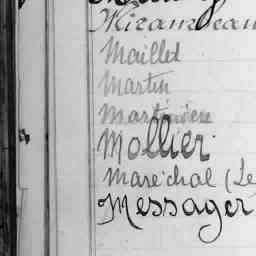 Mirambeau
Maillet
Martin
Martinière
Mollier
Maréchal (Le
Messager